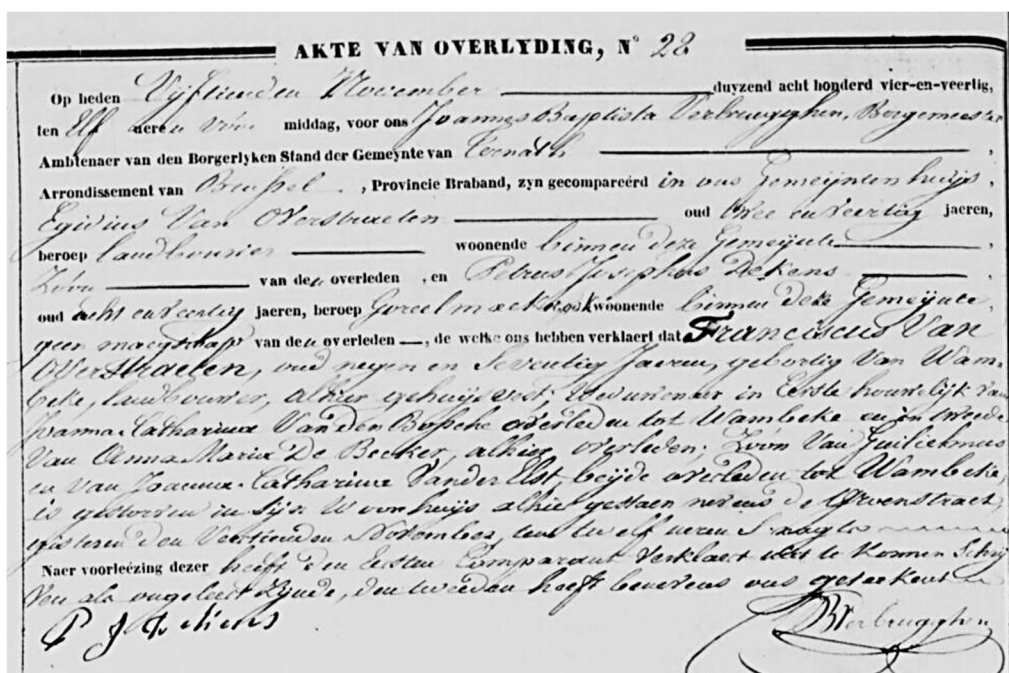 AKTE VAN OVERLYDING, N° 28
Op heden Vyftienden November duyzend acht honderd vier-en-veertig,
ten Elf ueren voor middag, voor ons Joannes Baptista Verbrugghen, Borgemeester
Ambtenaer van den Borgerlyken Stand der Gemeynte van Ternath,
Arrondissement van Brussel, Provincie Braband, zyn gecompareérd in ons Gemeijntenhuijs,
Egidius Van Overstraelen oud twee en veertig jaeren,
beroep landbouwer woonende binnen deze Gemeijnte,
Zoon van den overleden, en Petrus Josephus Dekens,
oud acht en veertig jaeren, beroep woonende binnen deze Gemeijnte,
geen maegschap van den overleden, de welke ons hebben verklaert dat Franciscus Van
Overstraelen, oud negen en Seventig Jaeren, gebortig Van Wam-
beke, landbouwer, alhier gehuijsvest; Weduwenaer in Eerste houwelijk van
Joanna Catharina Van den Bossche overleden tot Wambeke en in tweede
Van Anna Maria De Becker, alhier overleden; Zoon Van Guilielmus
en Van Joanna Catharina Vander Elst, beyde overleden tot Wambeke,
is gestorven in Sijn Woonhuijs alhier gestaen nevens de straet,
gisteren den Veertienden November, ten twelf ueren S'nagts
Naer voorleézing dezer heeft den Eersten Comparant Verklaert niet te konnen Schrij
ven als ongeleert Zijnde, den tweeden heeft benevens ons geteekent
P J Dekens
JB Verbrugghen